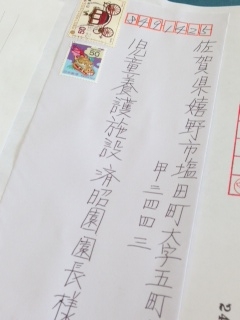 8491425
佐賀県嬉野市塩田町大字五町
甲二四四三
児童養護施設 済昭園園長様
80